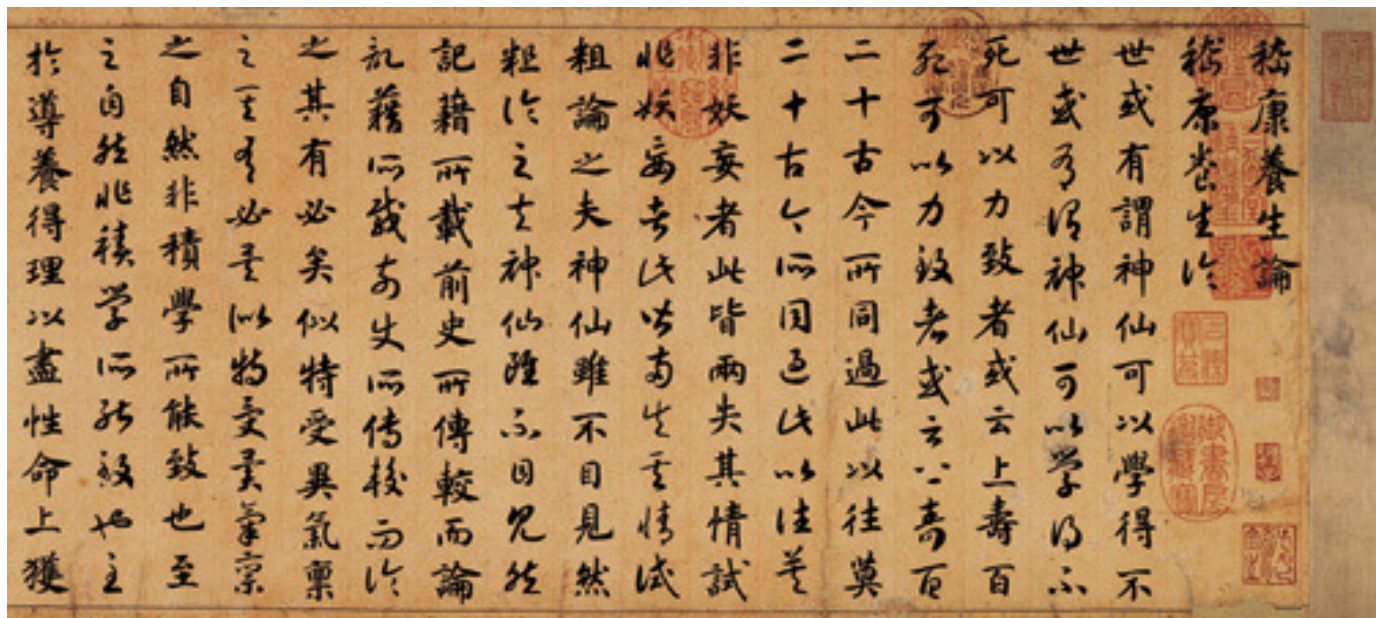 嵇康養生論
嵇康養生論
世或有謂神仙可以學得不
世或有謂神仙可以學得不
死可以力致者或云上壽百
死可以力致者或云上壽百
二十古今所同過此以往莫
二十古今所同過此以往莫
非妖妄者此皆兩失其情試
非妖妄者此皆兩失其情試
粗論之夫神仙雖不目見然
粗論之夫神仙雖不目見然
記藉所載前史所傳較而論
記藉所載前史所傳較而論
之其有必矣似特受異氣稟
之其有必矣似特受異氣稟
之自然非積學所能致也至
之自然非積學所能致也至
於導養得理以盡性命上獲